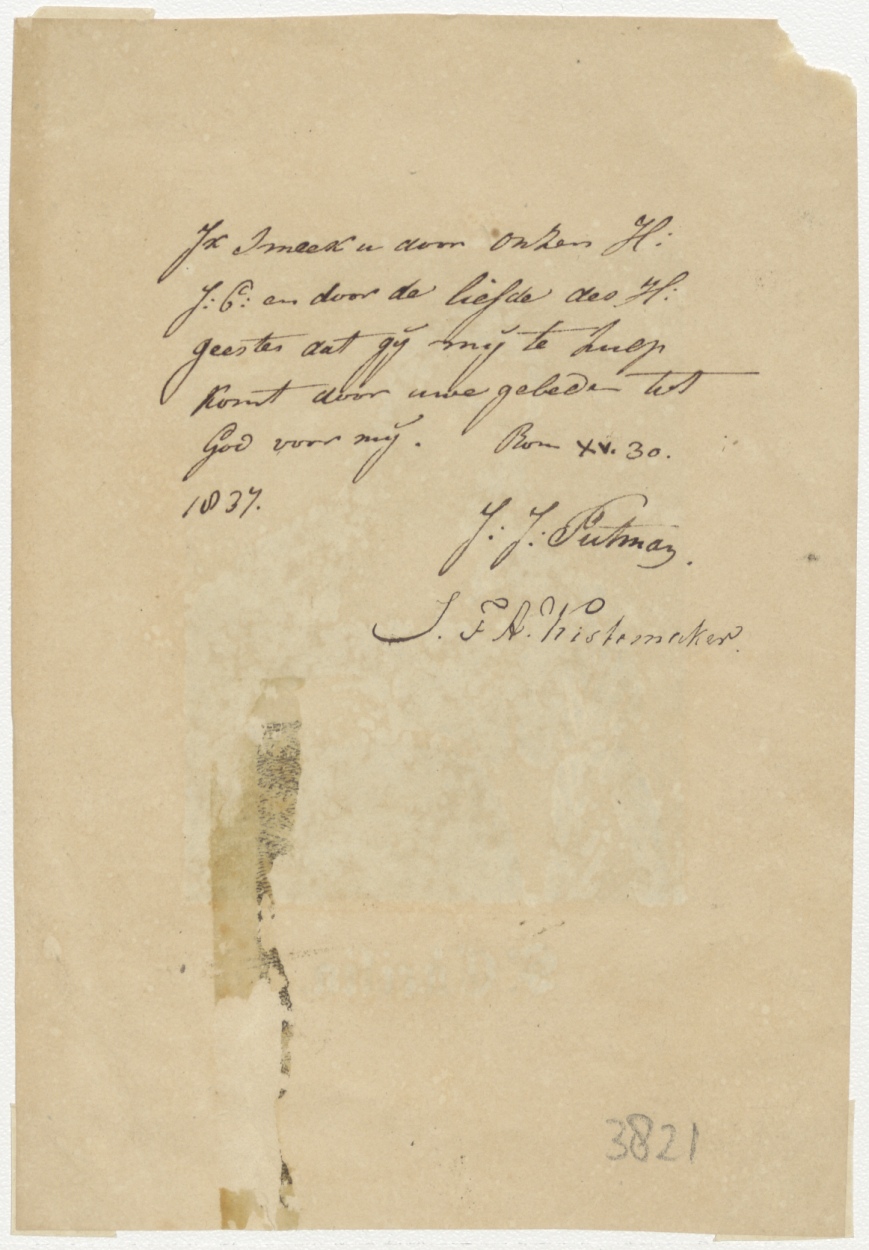 Ik smeek u door onzen H:
J: C: en door de liefde des H:
geestes dat gÿ mÿ te hulp
komt door uwe gebeden tot
God voor mÿ. Rom XV. 30.
1837.
J: J: Putman.
J. F. A. Kistemaker.
3821